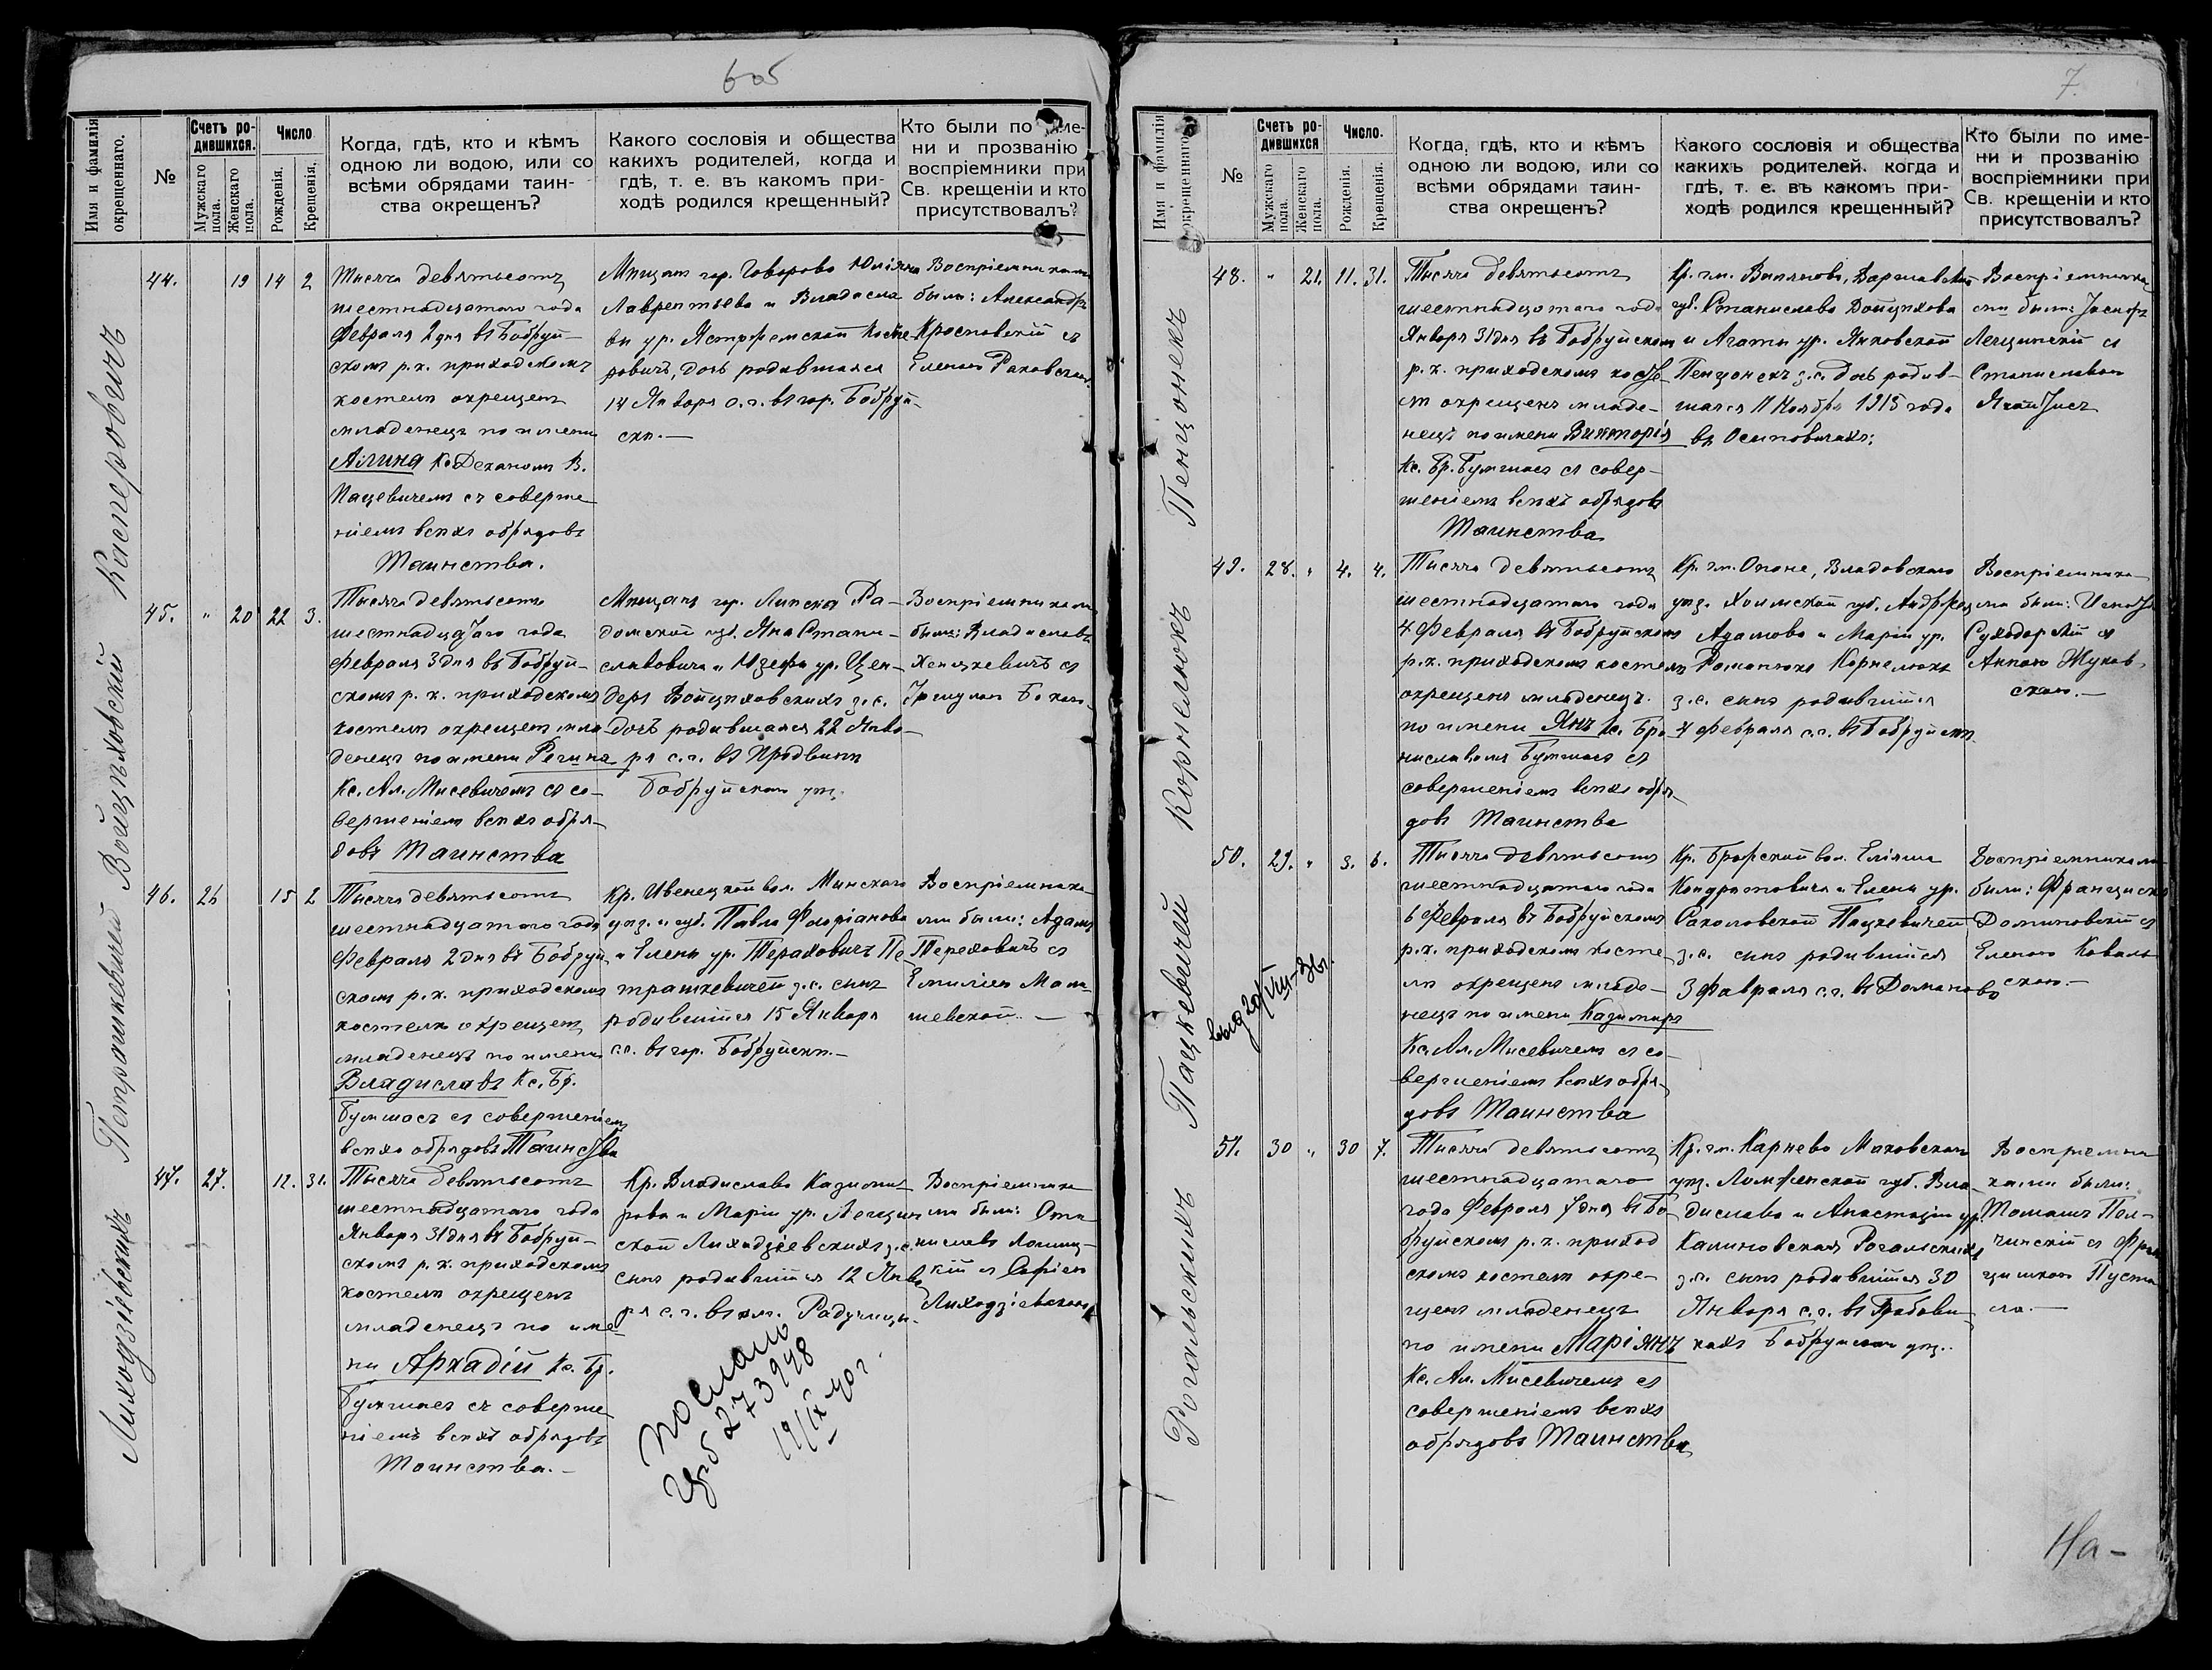 6об
Имя и фамилія окрещеннаго.
№
Счетъ ро-
дившихся.
Мужскаго пола.
Женскаго пола.
Число
Рожденія.
Крещенія.
Когда, гдѣ, кто и кѣмъ
одною ли водою, или со
всѣми обрядами таин-
ства окрещенъ?
Какого сословія и общества
какихъ родителей, когда и
гдѣ, т. е. въ какомъ при-
ходѣ родился крещенный?
Кто были по име-
ни и прозванію
воспріемники при
Св. крещеніи и кто
присутствовалъ?
Касперовичъ
44. 19 14 2
Тысяча девятьсотъ
шестнадцатаго года
Февраля 2 дня въ Бобруй-
скомъ р.к. приходскомъ
костелѣ окрещенъ
младенецъ по имени
Алина Кс. Деканомъ В.
Пацевичемъ съ соверше
ніемъ всѣхъ обрядовъ
Таинства.
Мѣщан гор. Говорово Юліяна
Лаврентьева и Владисла
вы ур. Ястржемской Каспе-
ровичъ, дочь родившаяся
14 Января с.г. въ гор. Бобруй-
скѣ.—
Воспріемниками
были: Александръ
Кросновскій съ
Еленою Раковскою
Войцѣховскій
45. " 20 22 3.
Тысяча девятьсотъ
шестнадцатаго года
Февраля 3 дня въ Бобруй-
скомъ р. к. приходскомъ
костелѣ окрещенъ мла
денецъ по имени Регина
Кс. Ал. Мисевичемъ съ со-
вершеніемъ всѣхъ обря-
довъ Таинства
Мѣщанъ гор. Липска Ра-
домской губ. Яна Стани-
славовича и Юзефы ур. Цен-
деръ Войцѣховскихъ з.с.
дочь родившаяся 22 Янва-
ря с.г. въ
Бобруйскаго уѣз.
Воспріемниками
были: Владиславъ
съ
Петрашкевичей
46. 26 15 2
Тысяча девятьсотъ
шестнадцатаго года
Февраля 2 дня въ Бобруй
скомъ р. к. приходскомъ
костелѣ окрещенъ
младенецъ по имени
Владиславъ Кс. Бр.
Бумшасъ съ совершеніемъ
всѣхъ обрядовъ Таинства
Кр. Ивенецкой вол. Минскаго
уѣз. и губ. Павла Флоріанова
и Елены ур. Тераховичъ Пе-
трашкевичей з.с. сынъ
родившійся 15 Января
с.г. въ гор. Бобруйскѣ.—
Воспріемника-
ми были: Адамъ
Тереховичъ съ
Емиліею Мат-
шевской.—
Лиходзіевскихъ
47. 27. 12. 31.
Тысяча девятьсотъ
шестнадцатаго года
Января 31 дня въ Бобруй-
скомъ р. к. приходскомъ
костелѣ окрещенъ
младенецъ по име-
ни Аркадій Кс. Бр.
Бумшасъ съ соверше
ніемъ всѣхъ обрядовъ
Таинства.—
Кр. Владислава Казими-
рова и Маріи ур. Лещин
ской Лиходзіевскихъ з.с.
сынъ родившійся 12 Янва
ря с.г. въ им. Радучицы.
Воспріемника
ми были: Ста
ниславъ
съ Софіею
Лиходзіевскою
послано
273948
19/IX-40г.
7.
Имя и фамилія окрещеннаго.
№
Счетъ ро-
дившихся
Мужскаго пола.
Женскаго пола.
Число.
Рожденія.
Крещенія.
Когда, гдѣ, кто и кѣмъ
одною ли водою, или со
всѣми обрядами таин-
ства окрещенъ?
Какого сословія и общества
какихъ родителей. когда и
гдѣ, т. е. въ какомъ при-
ходѣ родился крещенный?
Кто были по име-
ни и прозванію
воспріемники при
Св. крещеніи и кто
присутствовалъ?
Пенцонекъ
48. " 21. 11. 31.
Тысяча девятьсотъ
шестнадцатаго года
Января 31 дня въ Бобруйскомъ
р. к. приходскомъ косте-
лѣ окрещенъ младе-
нецъ по имени Викторія
Кс. Бр. Бумшасъ съ совер-
шеніемъ всѣхъ обрядовъ
Таинства
Кр. гм. Варшавской
губ. Станислава Войцѣхова
и Агаты ур. Янковской
Пенцонекъ з.с. дочь родив-
шаяся 11 Ноября 1915 года
въ Осиповичахъ.
Воспріемника-
ми были: Іосифъ
Лещинскій съ
Станиславою
Корнелюкъ
49. 28. " 4. 4.
Тысяча девятьсотъ
шестнадцатаго года
4 Февраля въ Бобруйскомъ
р.к. приходскомъ костелѣ
окрещенъ младенецъ
по имени Янъ Кс. Бро-
ниславомъ Бумшасъ съ
совершеніемъ всѣхъ обря-
довъ Таинства
Кр. гм. Опole, Владовскаго
уѣз. Холмской губ. Андржея
Адамова и Маріи ур.
Романюкъ Корнелюкъ
з.с. сынъ родившійся
4 Февраля с.г. въ Бобруйскѣ
Воспріемника-
ми были: Игнатъ
Суходорскій съ
Анною Жуков-
скою.—
Пацкевичей
50. 29. " 3. 6.
Тысяча девятьсотъ
шестнадцатаго года
6 Февраля въ Бобруйскомъ
р.к. приходскомъ косте-
лѣ окрещенъ младе-
нецъ по имени Казимиръ
Кс. Ал. Мисевичемъ съ со-
вершеніемъ всѣхъ обря-
довъ Таинства
Кр. Брожской вол. Еліяша
Кондратовича и Елены ур.
Соколовской Пацкевичей
з.с. сынъ родившійся
3 Февраля с.г. въ Доманово
Воспріемниками
были: Францискъ
Домановскій съ
Еленою Коваль-
скою.—
Рогальскихъ
51. 30 " 30 7.
Тысяча девятьсотъ
шестнадцатаго
года Февраля 7 дня въ Бо-
бруйскомъ р. к. приход
скомъ костелѣ окре-
щенъ младенецъ
по имени Маріянъ
Кс. Ал. Мисевичемъ съ
совершеніемъ всѣхъ
обрядовъ Таинства
Кр. гм. Карнево Маковскаго
уѣз. Ломженской губ. Вла-
дислава и Анастазіи ур.
Калиновская Рогальскихъ
з.с. сынъ родившійся 30
Января с.г. въ
Бобруйскаго уѣз..
Воспріемни
ками были:
Томашъ Пол-
чинскій съ Фран
цишкою Пуста
ла.—
На-